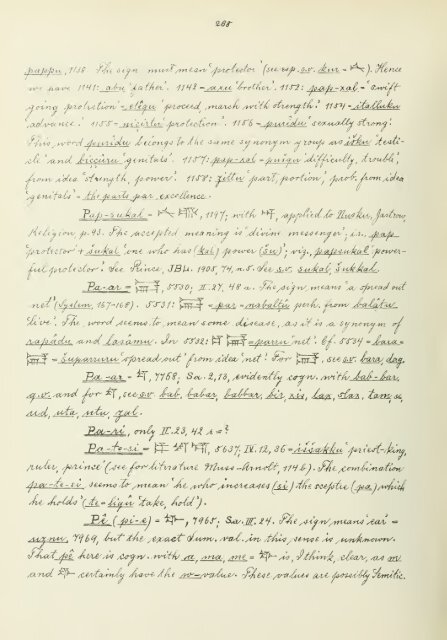 268
puppu, 1138. The sign must mean 'protector' (see esp. s.v. kur = 𒉽). Hence
we have 1141: abu 'father.' 1142 = axu 'brother'. 1152: pap-xal = 'swift
going protection' = etêqu 'proceed, march with strength.' 1154 = italluku
'advance.' 1155 = niçirtu 'protection'. 1156 = puridu 'sexually strong.'
This word puridu belongs to the same synonym group as išku 'testi-
cli' and biççûru 'genitals'. 1157: pap-xal = pušqu 'difficulty, trouble',
from idea 'strength, power'. 1158: zittu 'part, portion', prob. from idea
'genitals' = the parts par excellence.
Pap-sukal = 1147; with applied to Nusku, Jastrow,
Religion, p. 93. The accepted meaning is 'divine messenger'; i.e., pap
'protector' + sukal 'one who has (kal) power (su)'; viz., papsukal 'power-
ful protector'. See Prince, JBL. 1905, 74, n.5. See s.v. sukal, šukkal.
Pa-ar = 5530; II. 27, 48 a. The sign means 'a spread out
net' (System, 167-168). 5531: = par = nabaltu perh. from balâtu
'live'. The word seems to mean some disease, as it is a synonym of
rapâdu and lasâmu. In 5532: = parru 'net'. Cf. 5534 = bara =
= šuparruru 'spread out' from idea 'net'. For see s.v. bara, dag.
Pa-ar = 7768; Sa. 2, 13, evidently cogn. with bab-bar,
q.v. and for see s.v. bab, babar, babbar, bir, xis, lax, tam, u,
ud, uta, utu, zal.
Pa-ri, only II. 23, 42 e = ?
Pa-te-si = 5637, IV. 12, 36 = iššakku 'priest-king,
ruler, prince' (see for literature Muss-Arnolt, 114 b). The combination
pa-te-si seems to mean 'he who increases (si) the sceptre (pa) which
he holds' (te = liqû 'take, hold').
Pê (pi-e) = 7965; Sa. III. 24. The sign means 'ear' =
uznu, 7969, but the exact Sum. val. in this sense is unknown.
That pê here is cogn. with a, ma, me = is, I think, clear, as m
and certainly have the w-value. These values are possibly Semitic.